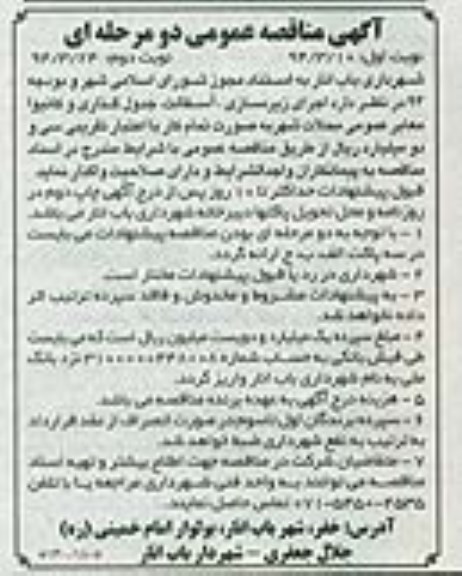 آگهی مناقصه عمومی دو مرحله ای
نوبت اول: ۹۴/۳/۱۰ نوبت دوم: ۹۴/۳/۲۴
شهرداری باب انار به استناد مجوز شورای اسلامی شهر و بودجه
۹۴ در نظر دارد اجرای زیرسازی، آسفالت، جدول گذاری و کانیوا
معابر عمومی محلات شهر به صورت تمام کار با اعتبار تقریبی سی و
دو میلیارد ریال از طریق مناقصه عمومی با شرایط مشرح در اسناد
مناقصه به پیمانکاران واجدالشرایط و دارای صلاحیت واگذار نماید.
قبول پیشنهادات حداکثر تا ۱۰ روز پس از درج آگهی چاپ دوم در
روزنامه و محل تحویل پاکتها دبیرخانه شهرداری باب انار می باشد.
۱ - با توجه به دو مرحله ای بودن مناقصه پیشنهادات می بایست
در سه پاکت الف، ب، ج ارائه گردد.
۲ - شهرداری در رد یا قبول پیشنهادات مختار است.
۳ - به پیشنهادات مشروط و مخدوش و فاقد سپرده ترتیب اثر
داده نخواهد شد.
۴ - مبلغ سپرده یک میلیارد و دویست میلیون ریال است که می بایست
طی فیش بانکی به حساب شماره نزد بانک
ملی به نام شهرداری باب انار واریز گردد.
۵ - هزینه درج آگهی به عهده برنده مناقصه می باشد.
۶ - سپرده برندگان اول تا سوم در صورت انصراف از عقد قرارداد
به ترتیب به نفع شهرداری ضبط خواهد شد.
۷ - متقاضیان شرکت در مناقصه جهت اطلاع بیشتر و تهیه اسناد
مناقصه می توانند به واحد فنی شهرداری مراجعه یا با تلفن
تماس حاصل نمایند.
آدرس: خفر، شهر باب انار، بولوار امام خمینی (ره)
جلال جعفری - شهردار باب انار